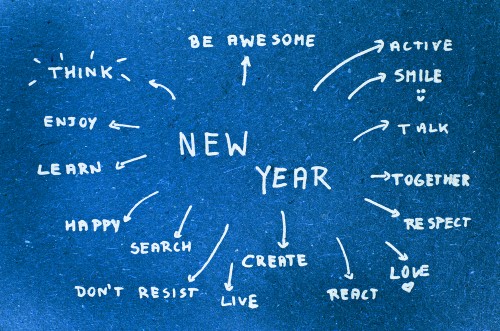 BE AWESOME
ACTIVE
THINK
SMILE
ENJOY
TALK
NEW
YEAR
LEARN
TOGETHER
HAPPY
RESPECT
SEARCH
CREATE
LOVE
DON'T RESIST
LIVE
REACT